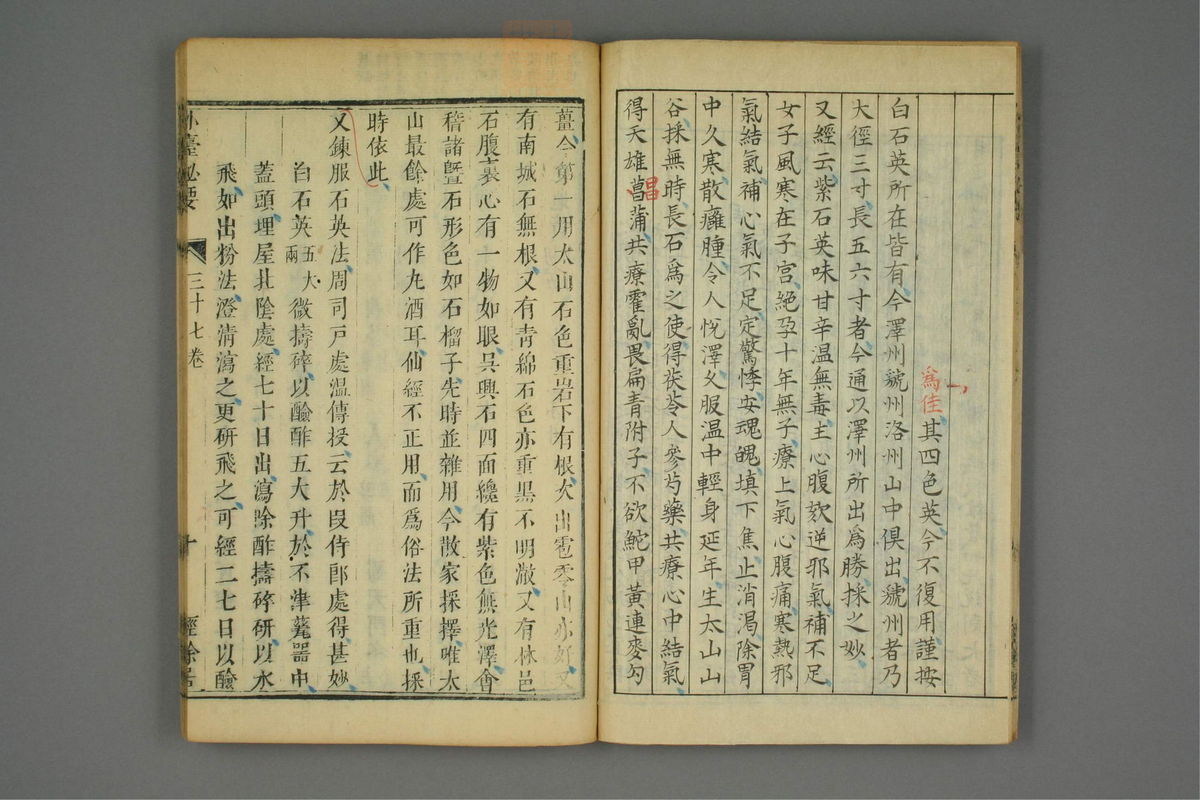 為佳其四色英今不復用謹按
白石英所在皆有今澤州虢州洛州山中俱出虢州者乃
大徑三寸長五六寸者今通以澤州所出為勝採之妙
又經云紫石英味甘辛温無毒主心腹欬逆邪氣補不足
女子風寒在子宮絕孕十年無子療上氣心腹痛寒熱邪
氣結氣補心氣不足定驚悸安魂魄填下焦止消渴除胃
中久寒散癰腫令人悅澤久服温中輕身延年生太山山
谷採無時長石為之使得茯苓人參芍藥共療心中結氣
得天雄菖蒲共療霍亂畏扁青附子不欲鮀甲黃連麥勾
昌
薑今第一用太山石色重岩下有根次出雹零山亦好又
有南城石無根又有青綿石色亦重黑不明澈又有林邑
石腹裏心有一物如眼吳興石四面纔有紫色無光澤會
稽諸暨石形色如石榴子先時並雜用今散家採擇唯太
山最餘處可作丸酒耳仙經不正用而為俗法所重也採
時依此
又錬服石英法周司戸處温傳授云於段侍郎處得甚妙
白石英五大兩微擣碎以醶酢五大升於不津甆器中
蓋頭埋屋北陰處經七十日出瀉除酢擣碎研以水
飛如出粉法澄清瀉之更研飛之可經二七日以醶
外臺秘要 三十七卷 十 經餘居